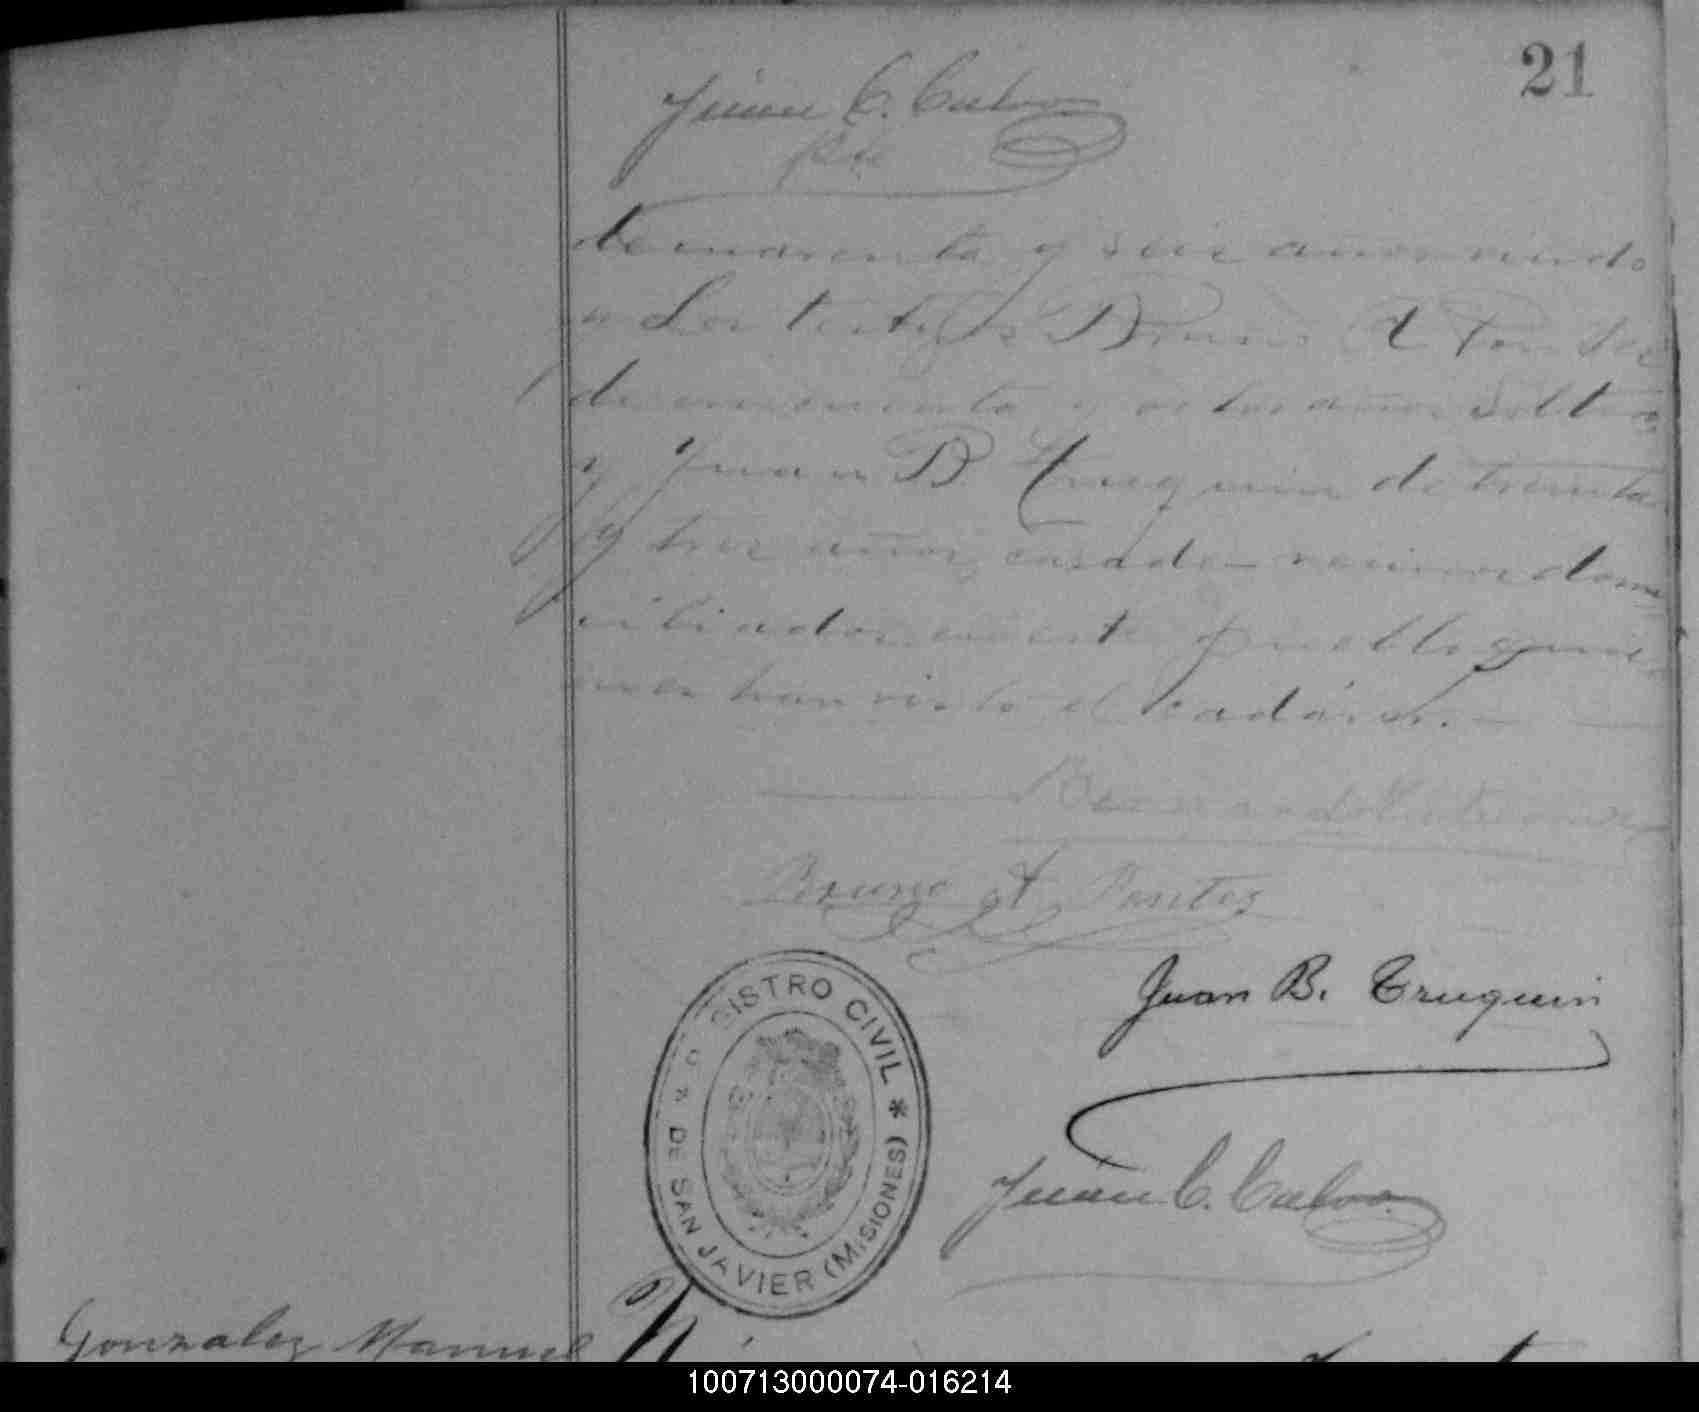 21
Juan C. Calvo
de cuarenta y seis años viudo
Los testigos Bruno A Pontes
de cincuenta y ocho años Soltero
y Juan B. Truquin de treinta
y tres años, casado vecinos domi
ciliados en este pueblo quie
nes han visto el cadáver.
Bruno A Pontes
Juan B. Truquin
GISTRO CIVIL * DE SAN JAVIER (MISIONES)
Juan C. Calvo
Gonzalez Manuel
100713000074-016214